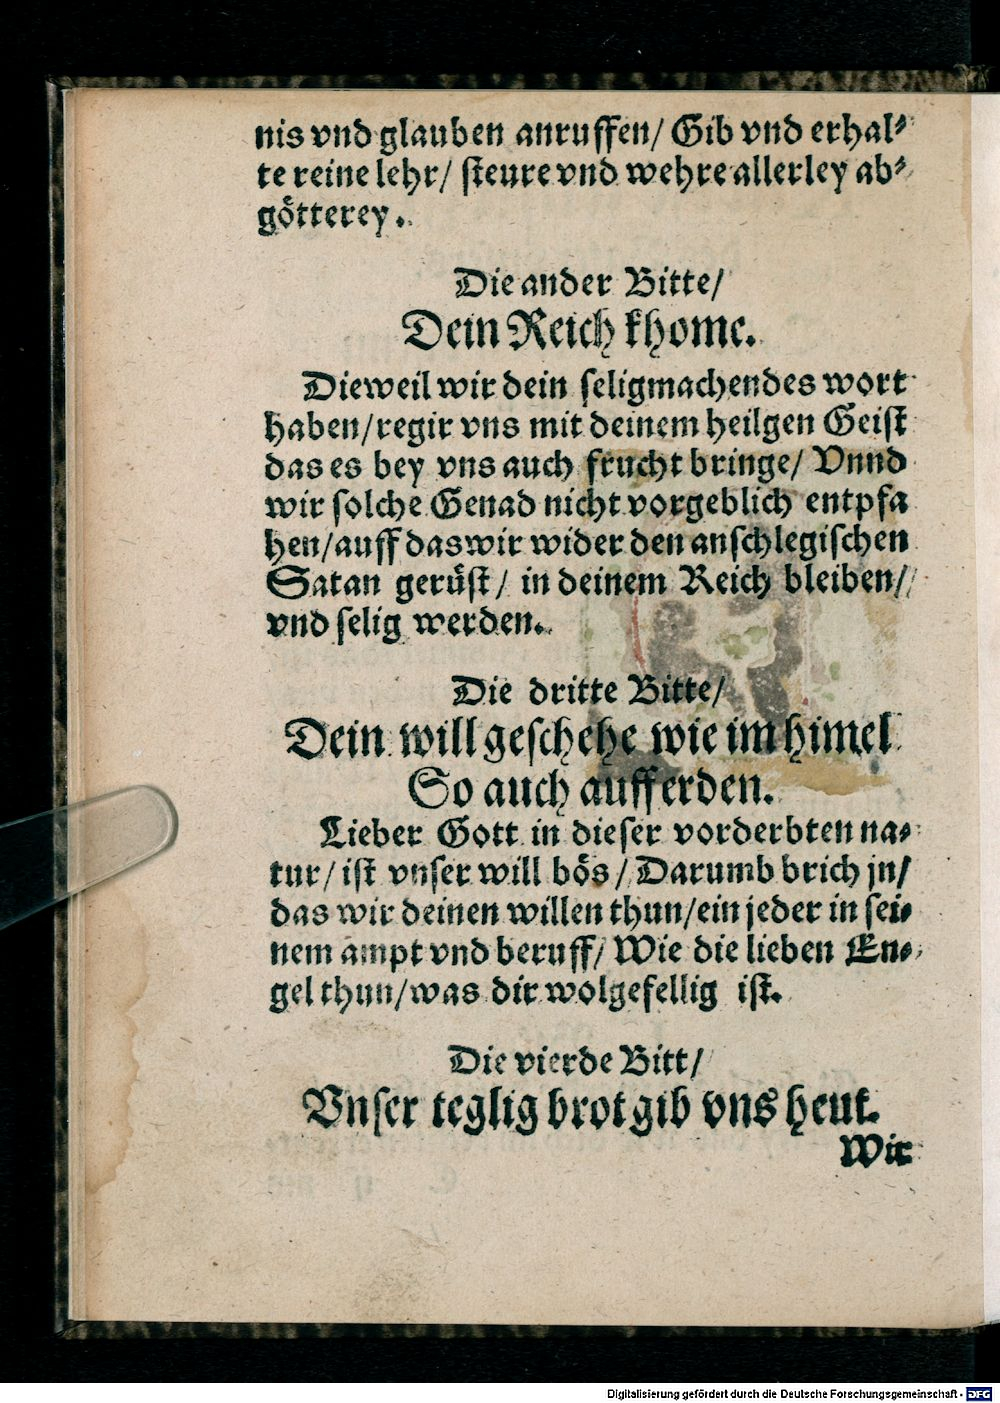 nis vnd glauben anruffen/ Gib vnd erhal⸗
te reine lehr/ steure vnd wehre allerley ab⸗
götterey.
Die ander Bitte/
Dein Reich khome.
Dieweil wir dein seligmachendes wort
haben/regir vns mit deinem heilgen Geist
das es bey vns auch frucht bringe/ Vnnd
wir solche Genad nicht vorgeblich entpfa
hen/auff das wir wider den anschlegischen
Satan gerüst/ in deinem Reich bleiben/
vnd selig werden.
Die dritte Bitte/
Dein will geschehe wie im himel
So auch auff erden.
Lieber Gott in dieser vorderbten na⸗
tur/ ist vnser will bös/ Darumb brich jn/
das wir deinen willen thun/ein jeder in sei⸗
nem ampt vnd beruff/ Wie die lieben En⸗
gel thun/was dir wolgefellig ist.
Die vierde Bitt/
Vnser teglig brot gib vns heut.
Wir
Digitalisierung gefördert durch die Deutsche Forschungsgemeinschaft - DFG